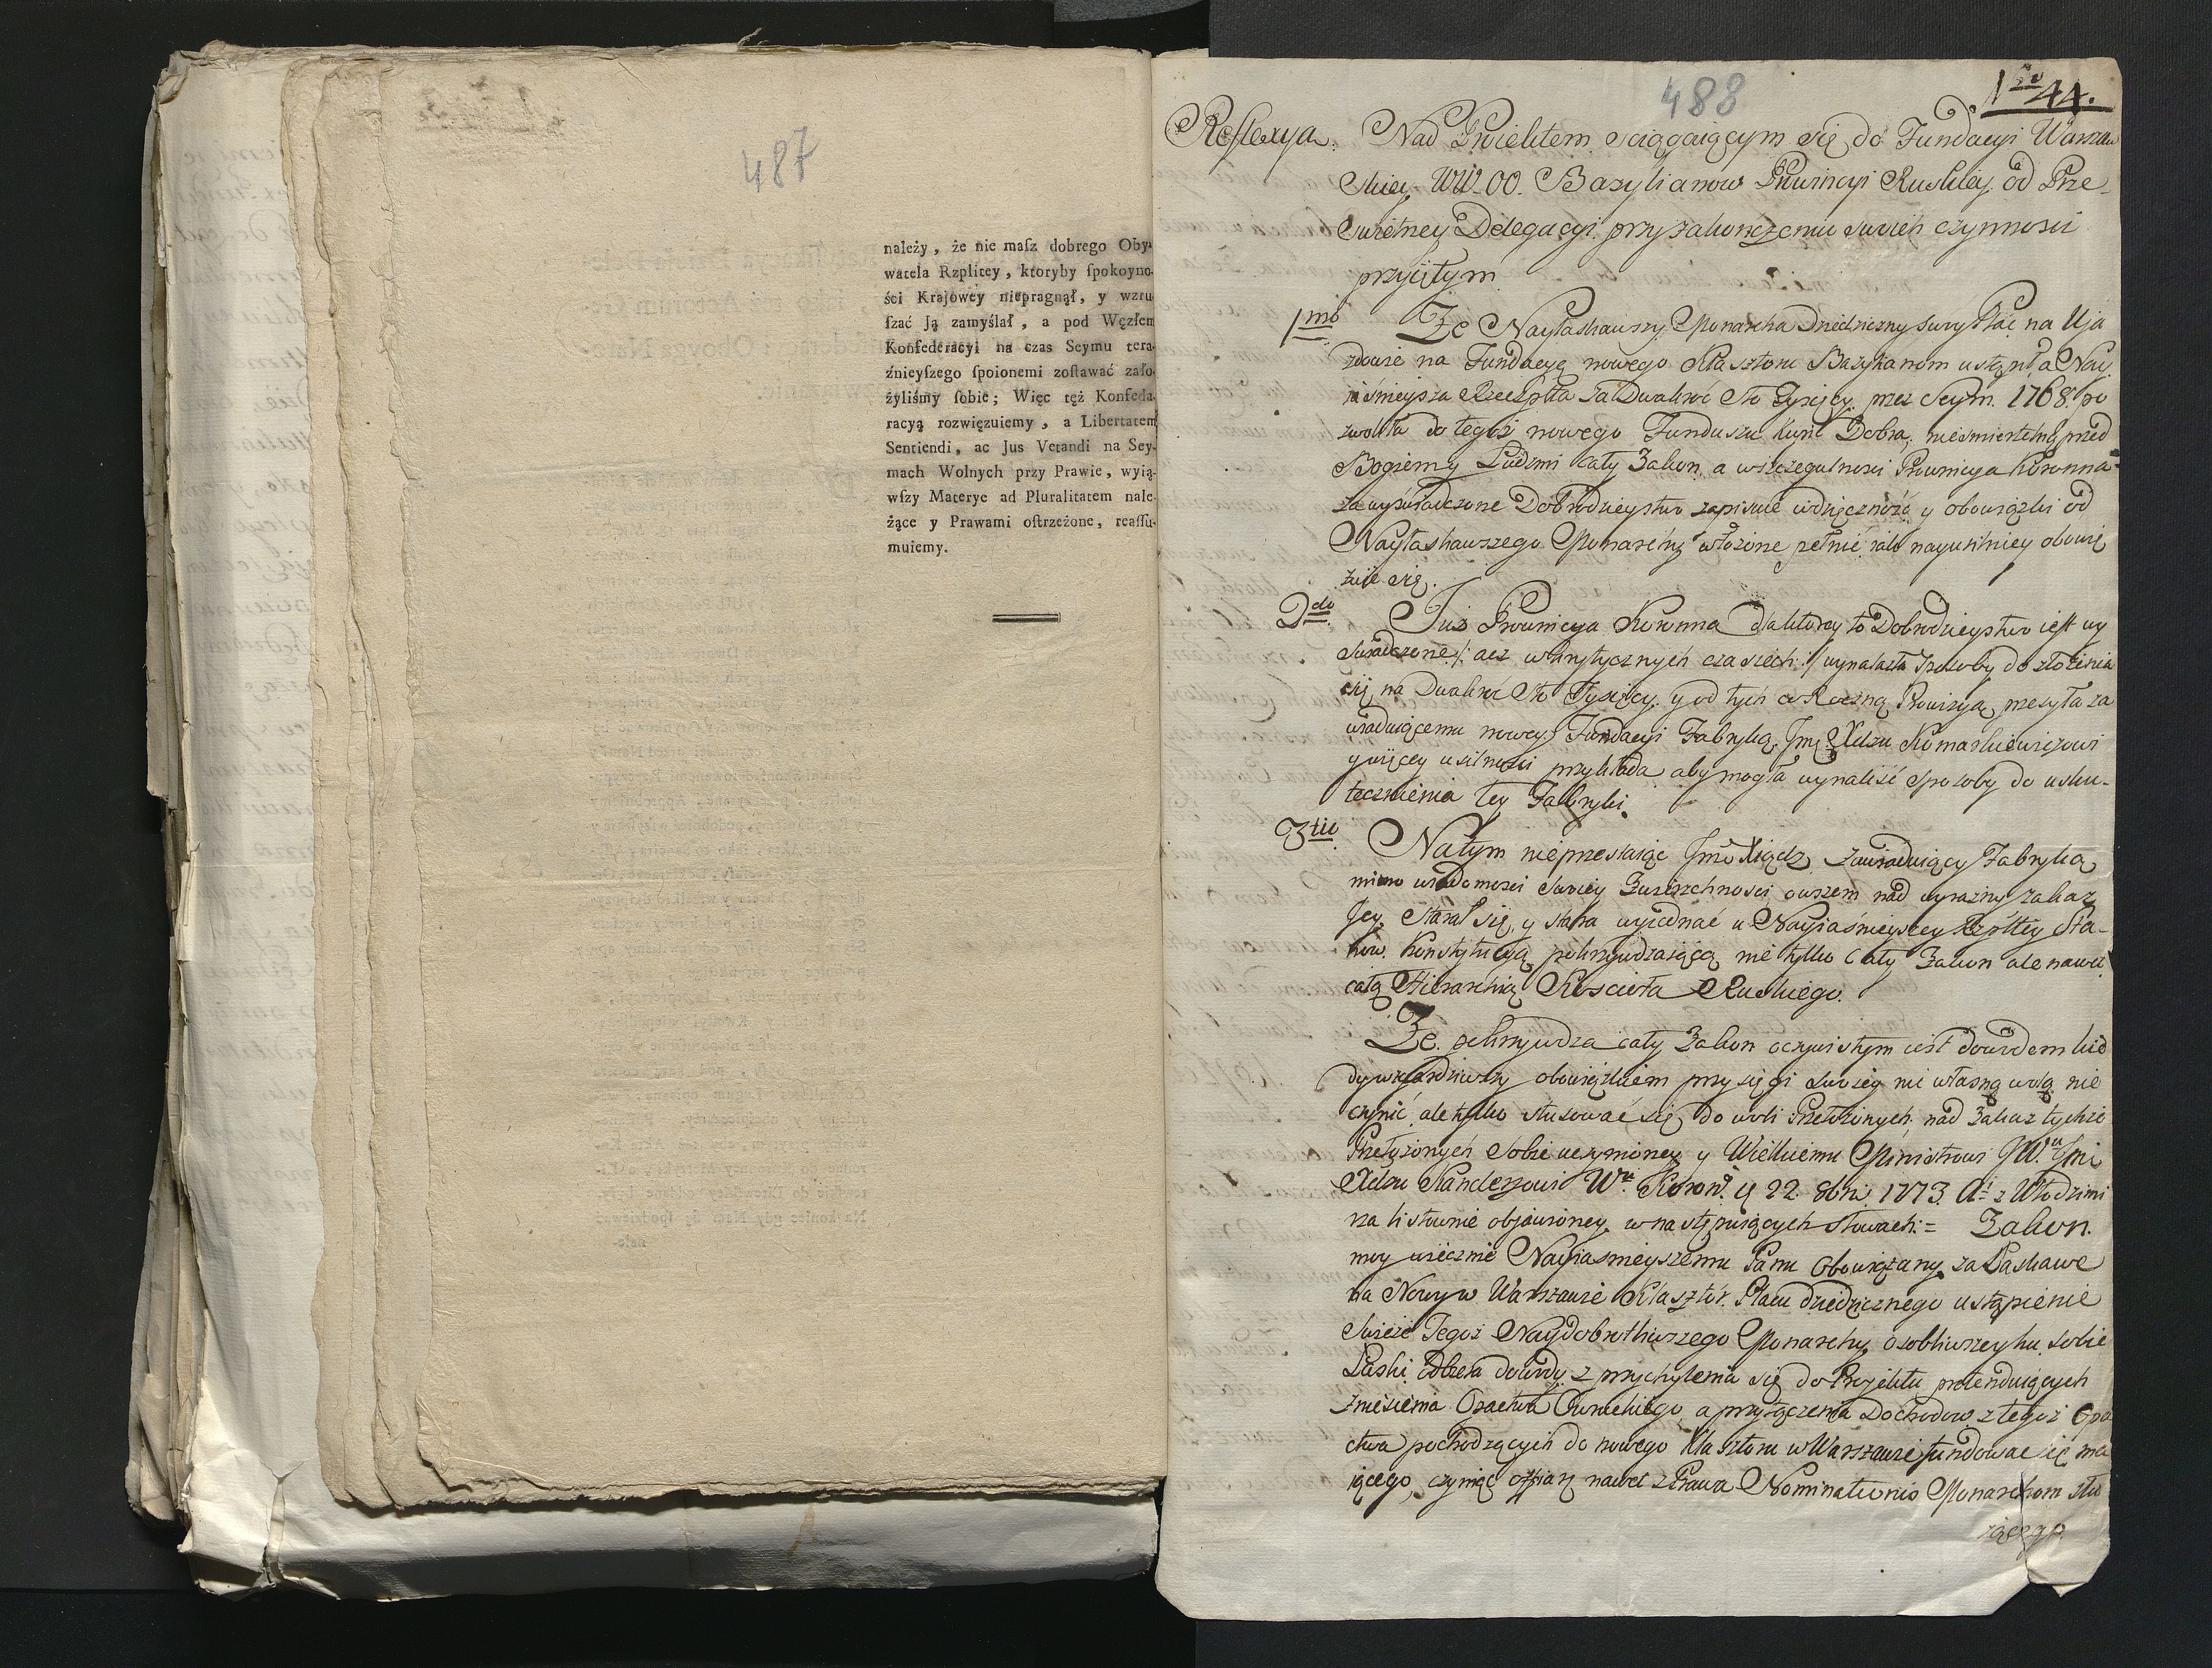 487
należy, że nie maſz dobrego Oby-
watela Rzplitey, ktoryby ſpokoyno-
ści Krajowey niepragnął, y wzru
ſzać Ją zamyślał, a pod Węzłem
Konfederacyi na czas Seymu tera-
źnieyſzego ſpoionemi zoſtawać zało-
żyliśmy ſobie; Więc też Konfede-
racyą rozwięzuiemy, a Libertatem
Sentiendi, ac Jus Vetandi na Sey-
mach Wolnych przy Prawie, wyią-
wſzy Materye ad Pluralitatem nale-
żące y Prawami oſtrzeżone, reaſſu-
muiemy.
488
Nro 44.
Reflexya. Nad Proiektem sciągaiącym się do Fundacyi Warszaw
skiey WW. OO. Bazylianow Prowincyi Ruskiey od Prze-
swietney Delegacyi przy zakończeniu swoich czynnosci
przyiętym
1mo Ze Nayłaskawszy Monarcha Dziedziczny swoy Plac na Uja
zdowie na Fundacyą nowego Klasztoru Bazylianom ustąpił, a Nay
iaśnieysza Rzeczpltta za Dwakroć Sto Tysięcy przez Seym 1768. po
zwoliła do tegoż nowego Funduszu kupić Dobra, nieśmiertelną przed
Bogiem y Ludzmi cały Zakon a wszczegulnosci Prowincya Koronna
za wyświadczone Dobrodzieystwo zapisuie wdzięczność y obowiązki od
Nayłaskawszego Monarchy włożone pełnić iak nayusilniey obowię
zuie się.
2do Juz Prowincya Koronna dla ktorey to Dobrodzieystwo iest wy
swiadczone /: acz w krytycznych czasiech :/ wynalazła sposoby do złożenia
się na Dwakroć Sto Tysięcy, y od tych co Roczną Prowizyą przesyła za
wiaduiącemu nowey Fundacyi Fabryką Jmć Xdzu Komarkiewiczowi
y usilnosci przykłada aby mogła wynaliść sposoby do usku-
tecznienia tey Fabryki.
3tio Natym nieprzestaiąc Jmć Xiądz zawiaduiący Fabryką
mimo wiadomosci swoiey Zwierzchnosci owszem nad wyrazny zakaz
Jey starał się, y stara wyiednać u Nayiaśnieyszey Rzpltey Sta-
now Konstytucyą pokrzywdzaiącą nie tylko Cały Zakon ale nawet
całą Hierarchią Kościoła Ruskiego.
Ze pokrzywdza cały Zakon oczywistym iest dowodem kie
dy wzgardziwszy obowiązkiem przysięgi swoiey nic własną wolą nie
czynić, ale tylko stosować się do woli Przełożonych, nad Zakaz tychże
Przełożonych sobie uczyniony y Wielkiemu Ministrowi JW. Jmć
Xdzu Kanclerzowi Wu Koron. d 22. 8bris 1773. Ai z Włodzimi
rza listownie objawioney w następuiących słowach:= Zakon
moy wiecznie Nayiasnieyszemu Panu obowiązany za Łaskawe
na Nowy w Warszawie Klasztor Placu dziedzicznego ustąpienie
swieże Tegoż Naydobrotliwszego Monarchy osobliwszey ku sobie
Łaski odbiera dowody z przychylenia się do Projektu pretenduiących
zniesienia Opactwa Owruckiego, a przyłączenia Dochodow z tegoż Opa
ctwa pochodzących do nowego Klasztoru w Warszawie fundować się ma
iącego, czyniąc offiarę nawet z Prawa Nominationis Monarchom słu
żącego.